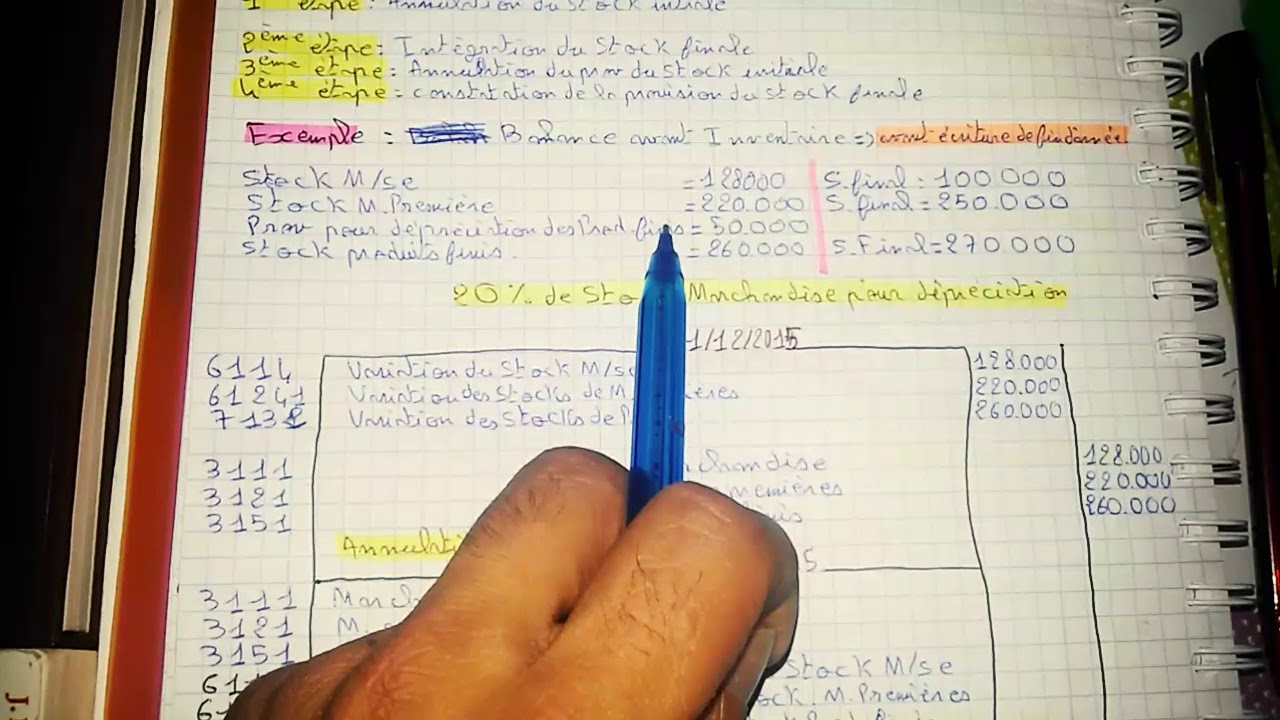 1 étape: Annulation du Stock initiale
2ème étape: Intégration du Stock finale
3ème étape: Annulation du prov du Stock initiale
4ème étape = constatation de la provision du stock finale
Exemple : Balance avant Inventaire => avant écriture de fin d'année
Stock M/se = 128000 S.final : 100 000
Stock M. Première = 220.000 S.final = 250.000
Prov pour dépréciation des Prod. finis = 50.000
Stock produits finis. = 260.000 S.Final = 270.000
20% de Sto Marchandise pour dépréciation
1/12/2015
6114 Variation du Stock M/se 128.000
61241 Variation des Stocks de M ières 220.000
7132 Variation des Stocks de 260.000
3111 chandise 128.000
3121 remières 220.000
3151 is 260.000
Annulati 5
3111 March
3121 M.
3151
61 Stock M/se
61 ock. M. Premières